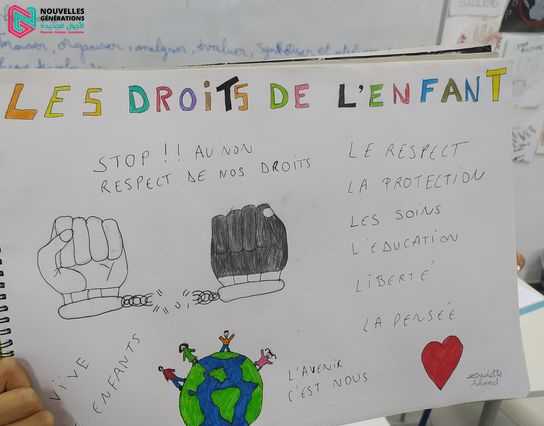 NOUVELLES
GÉNÉRATIONS
الأجيال الجديدة
organiser, analyser, évaluer, synthétiser et
LES DROITS DE L'ENFANT
STOP !! AU NON
RESPECT DE NOS DROITS
LE RESPECT
LA PROTECTION
LES SOINS
L'EDUCATION
LIBERTÉ
LA PENSÉE
VIVE
ENFANTS
L'AVENIR
C'EST NOUS